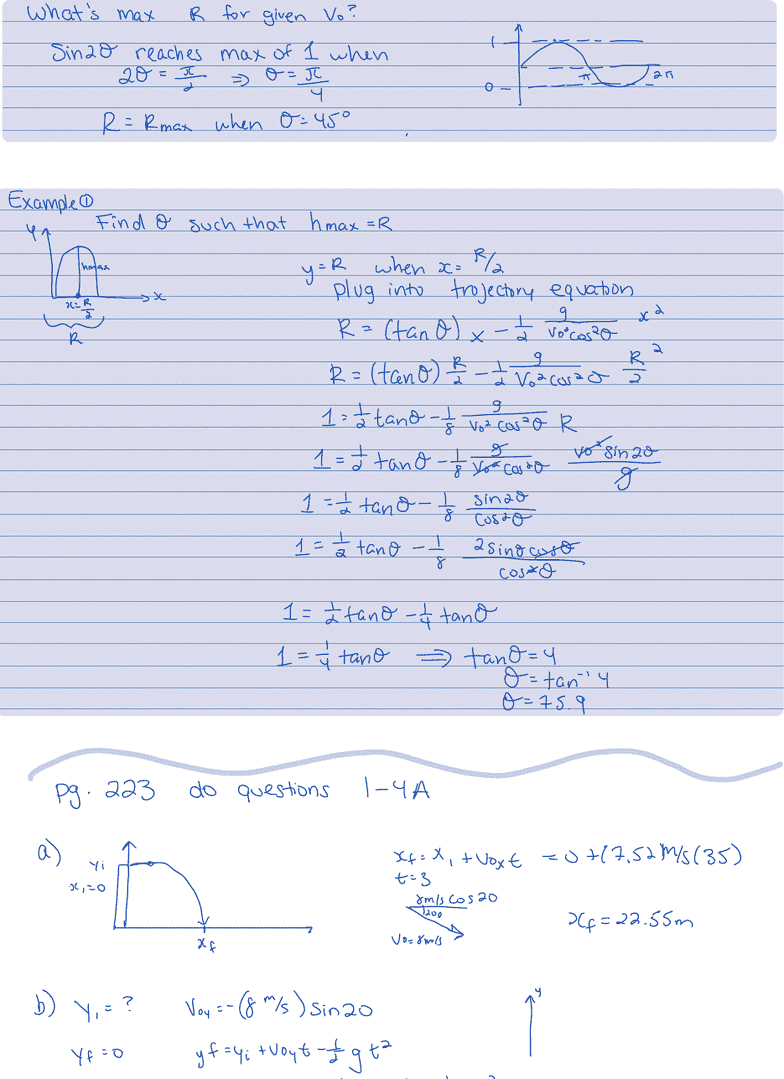 What's max R for given V₀?
Sin2θ reaches max of 1 when
2θ = π/2 ⇒ θ = π/4
1
0
π
2π
R = Rmax when θ = 45°
Example ①
Find θ such that hmax = R
y
hmax
x
x = R/2
R
y = R when x = R/2
plug into trojectory equation
R = (tanθ) x − 1/2 g/(V₀²cos²θ) x²
R = (tanθ) R/2 − 1/2 g/(V₀²cos²θ) R/2 ²
1 = 1/2 tanθ − 1/8 g/(V₀²cos²θ) R
1 = 1/2 tanθ − 1/8 g/(V₀²cos²θ) V₀²sin2θ/g
1 = 1/2 tanθ − 1/8 sin2θ/cos²θ
1 = 1/2 tanθ − 1/8 2sinθcosθ/cos²θ
1 = 1/2 tanθ − 1/4 tanθ
1 = 1/4 tanθ ⇒ tanθ = 4
θ = tan⁻¹ 4
θ = 75.9
pg. 223 do questions 1-4A
a)
yi
x₁=0
xf
xf = x₁ + V₀xt = 0 + (7.52 m/s (35)
t=3
8m/s cos 20
200
V₀=8m/s
xf = 22.55m
b) y₁ = ? V₀y = −(8 m/s) sin20
yf = 0 yf = yi + V₀yt − 1/2 g t²
y